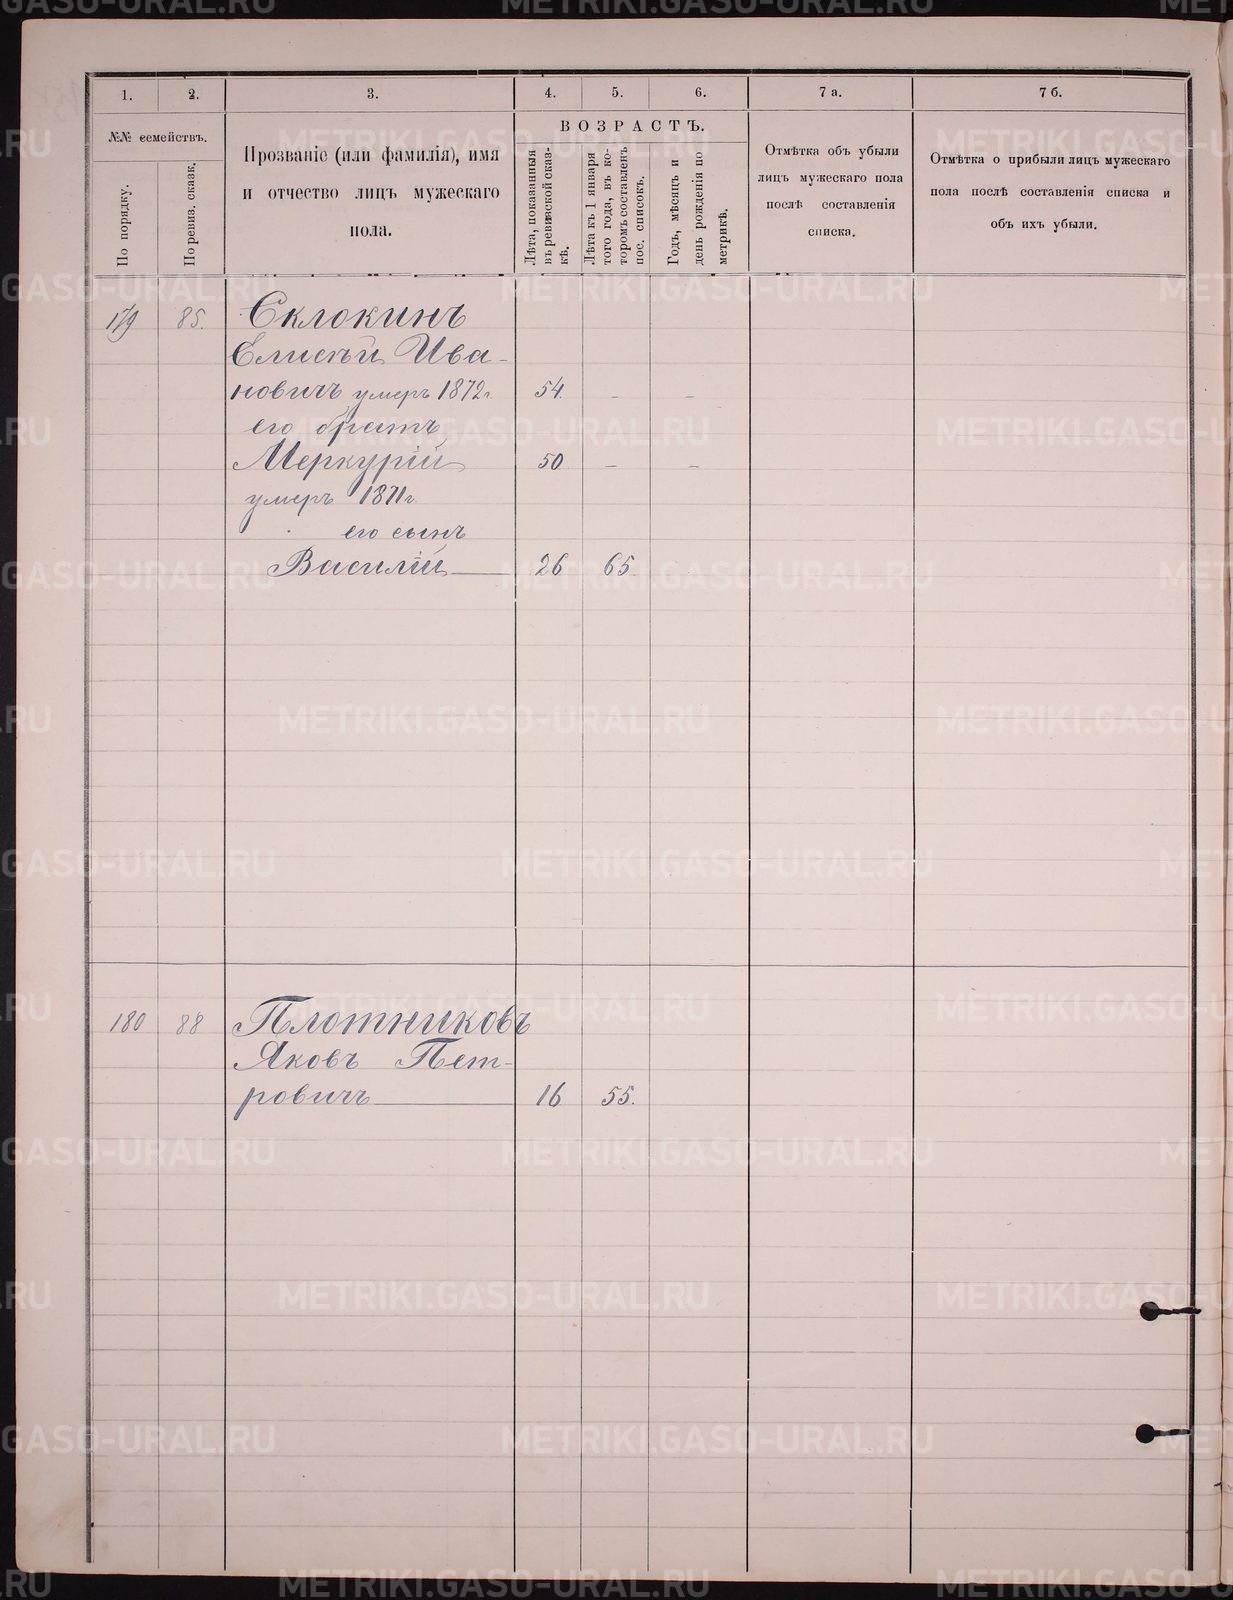 1.
2.
3.
4.
5.
6.
7 а.
7 б.
№№ семействъ.
По порядку.
По ревиз. сказк.
Прозваніе (или фамилія), имя
и отчество лицъ мужескаго
пола.
ВОЗРАСТЪ.
Лѣта, показанныя
въ ревизской сказ-
кѣ.
Лѣта къ 1 января
того года, въ ко-
торомъ составленъ
пос. списокъ.
Годъ, мѣсяцъ и
день рожденія по
метрикѣ.
Отмѣтка объ убыли
лицъ мужескаго пола
послѣ составленія
списка.
Отмѣтка о прибыли лицъ мужескаго
пола послѣ составленія списка и
объ ихъ убыли.
179 85. Склокинъ
Елисѣй Ива-
новичъ умеръ 1872 г. 54. - -
его братъ
Меркурій 50 - -
умеръ 1871 г.
его сынъ
Василій 26 65.
180 88 Плотниковъ
Яковъ Пет-
ровичъ 16 55.
METRIKI.GASO-URAL.RU